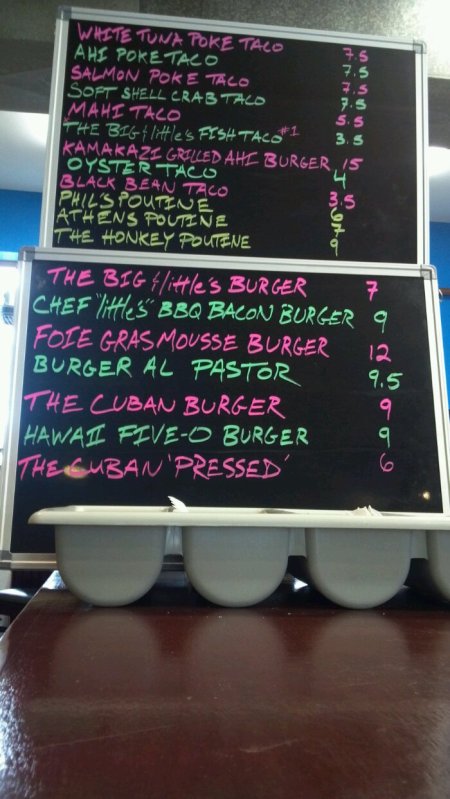 WHITE TUNA POKE TACO 7.5
AHI POKE TACO 7.5
SALMON POKE TACO 7.5
SOFT SHELL CRAB TACO 7.5
MAHI TACO 5.5
*THE BIG & little's FISH TACO #1 3.5
KAMAKAZI GRILLED AHI BURGER 15
OYSTER TACO 4
BLACK BEAN TACO 3.5
PHIL'S POUTINE 6
ATHENS POUTINE 7
THE HONKEY POUTINE 9
THE BIG & little's BURGER 7
CHEF "little's" BBQ BACON BURGER 9
FOIE GRAS MOUSSE BURGER 12
BURGER AL PASTOR 9.5
THE CUBAN BURGER 9
HAWAII FIVE-O BURGER 9
THE CUBAN 'PRESSED' 6